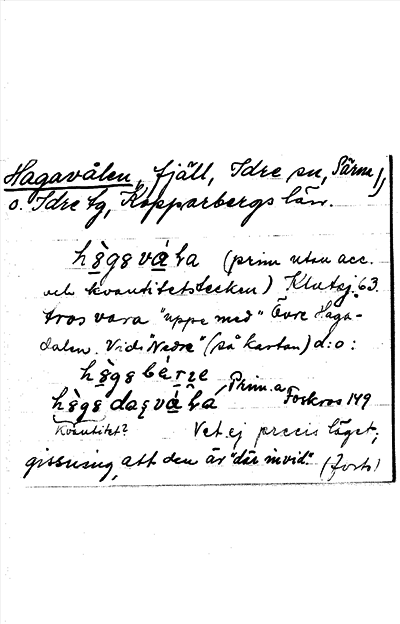 Hagavålen, fjäll, Idre sn, Särna
o. Idre tg, Kopparbergs län.
(prim utan acc.
och kvantitetstecken) Klutsj. 63.
tros vara "uppe med" Övre Haga-
dalen. Vid "Nedre" (på kartan) d:o:
Prim. a Foskros 149
Kvantitet? Vet ej precis läget;
gissning, att den är "där invid". (forts)